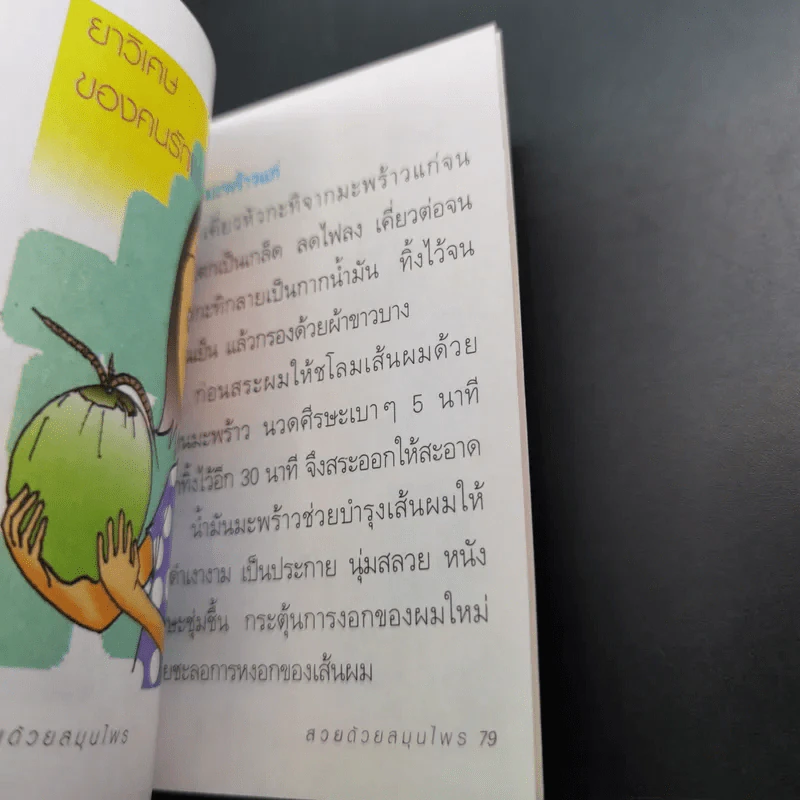 ยาวิเศษ
ของคนรัก
มะพร้าวแก่
เคี่ยวหัวกะทิจากมะพร้าวแก่จน
แตกเป็นเกล็ด ลดไฟลง เคี่ยวต่อจน
กะทิกลายเป็นกากน้ำมัน ทิ้งไว้จน
แล้วกรองด้วยผ้าขาวบาง
ก่อนสระผมให้ชโลมเส้นผมด้วย
มะพร้าว นวดศีรษะเบาๆ 5 นาที
ทิ้งไว้อีก 30 นาที จึงสระออกให้สะอาด
น้ำมันมะพร้าวช่วยบำรุงเส้นผมให้
ดำเงางาม เป็นประกาย นุ่มสลวย หนัง
ชุ่มชื้น กระตุ้นการงอกของผมใหม่
ชะลอการหงอกของเส้นผม
ด้วยสมุนไพร
สวยด้วยสมุนไพร 79